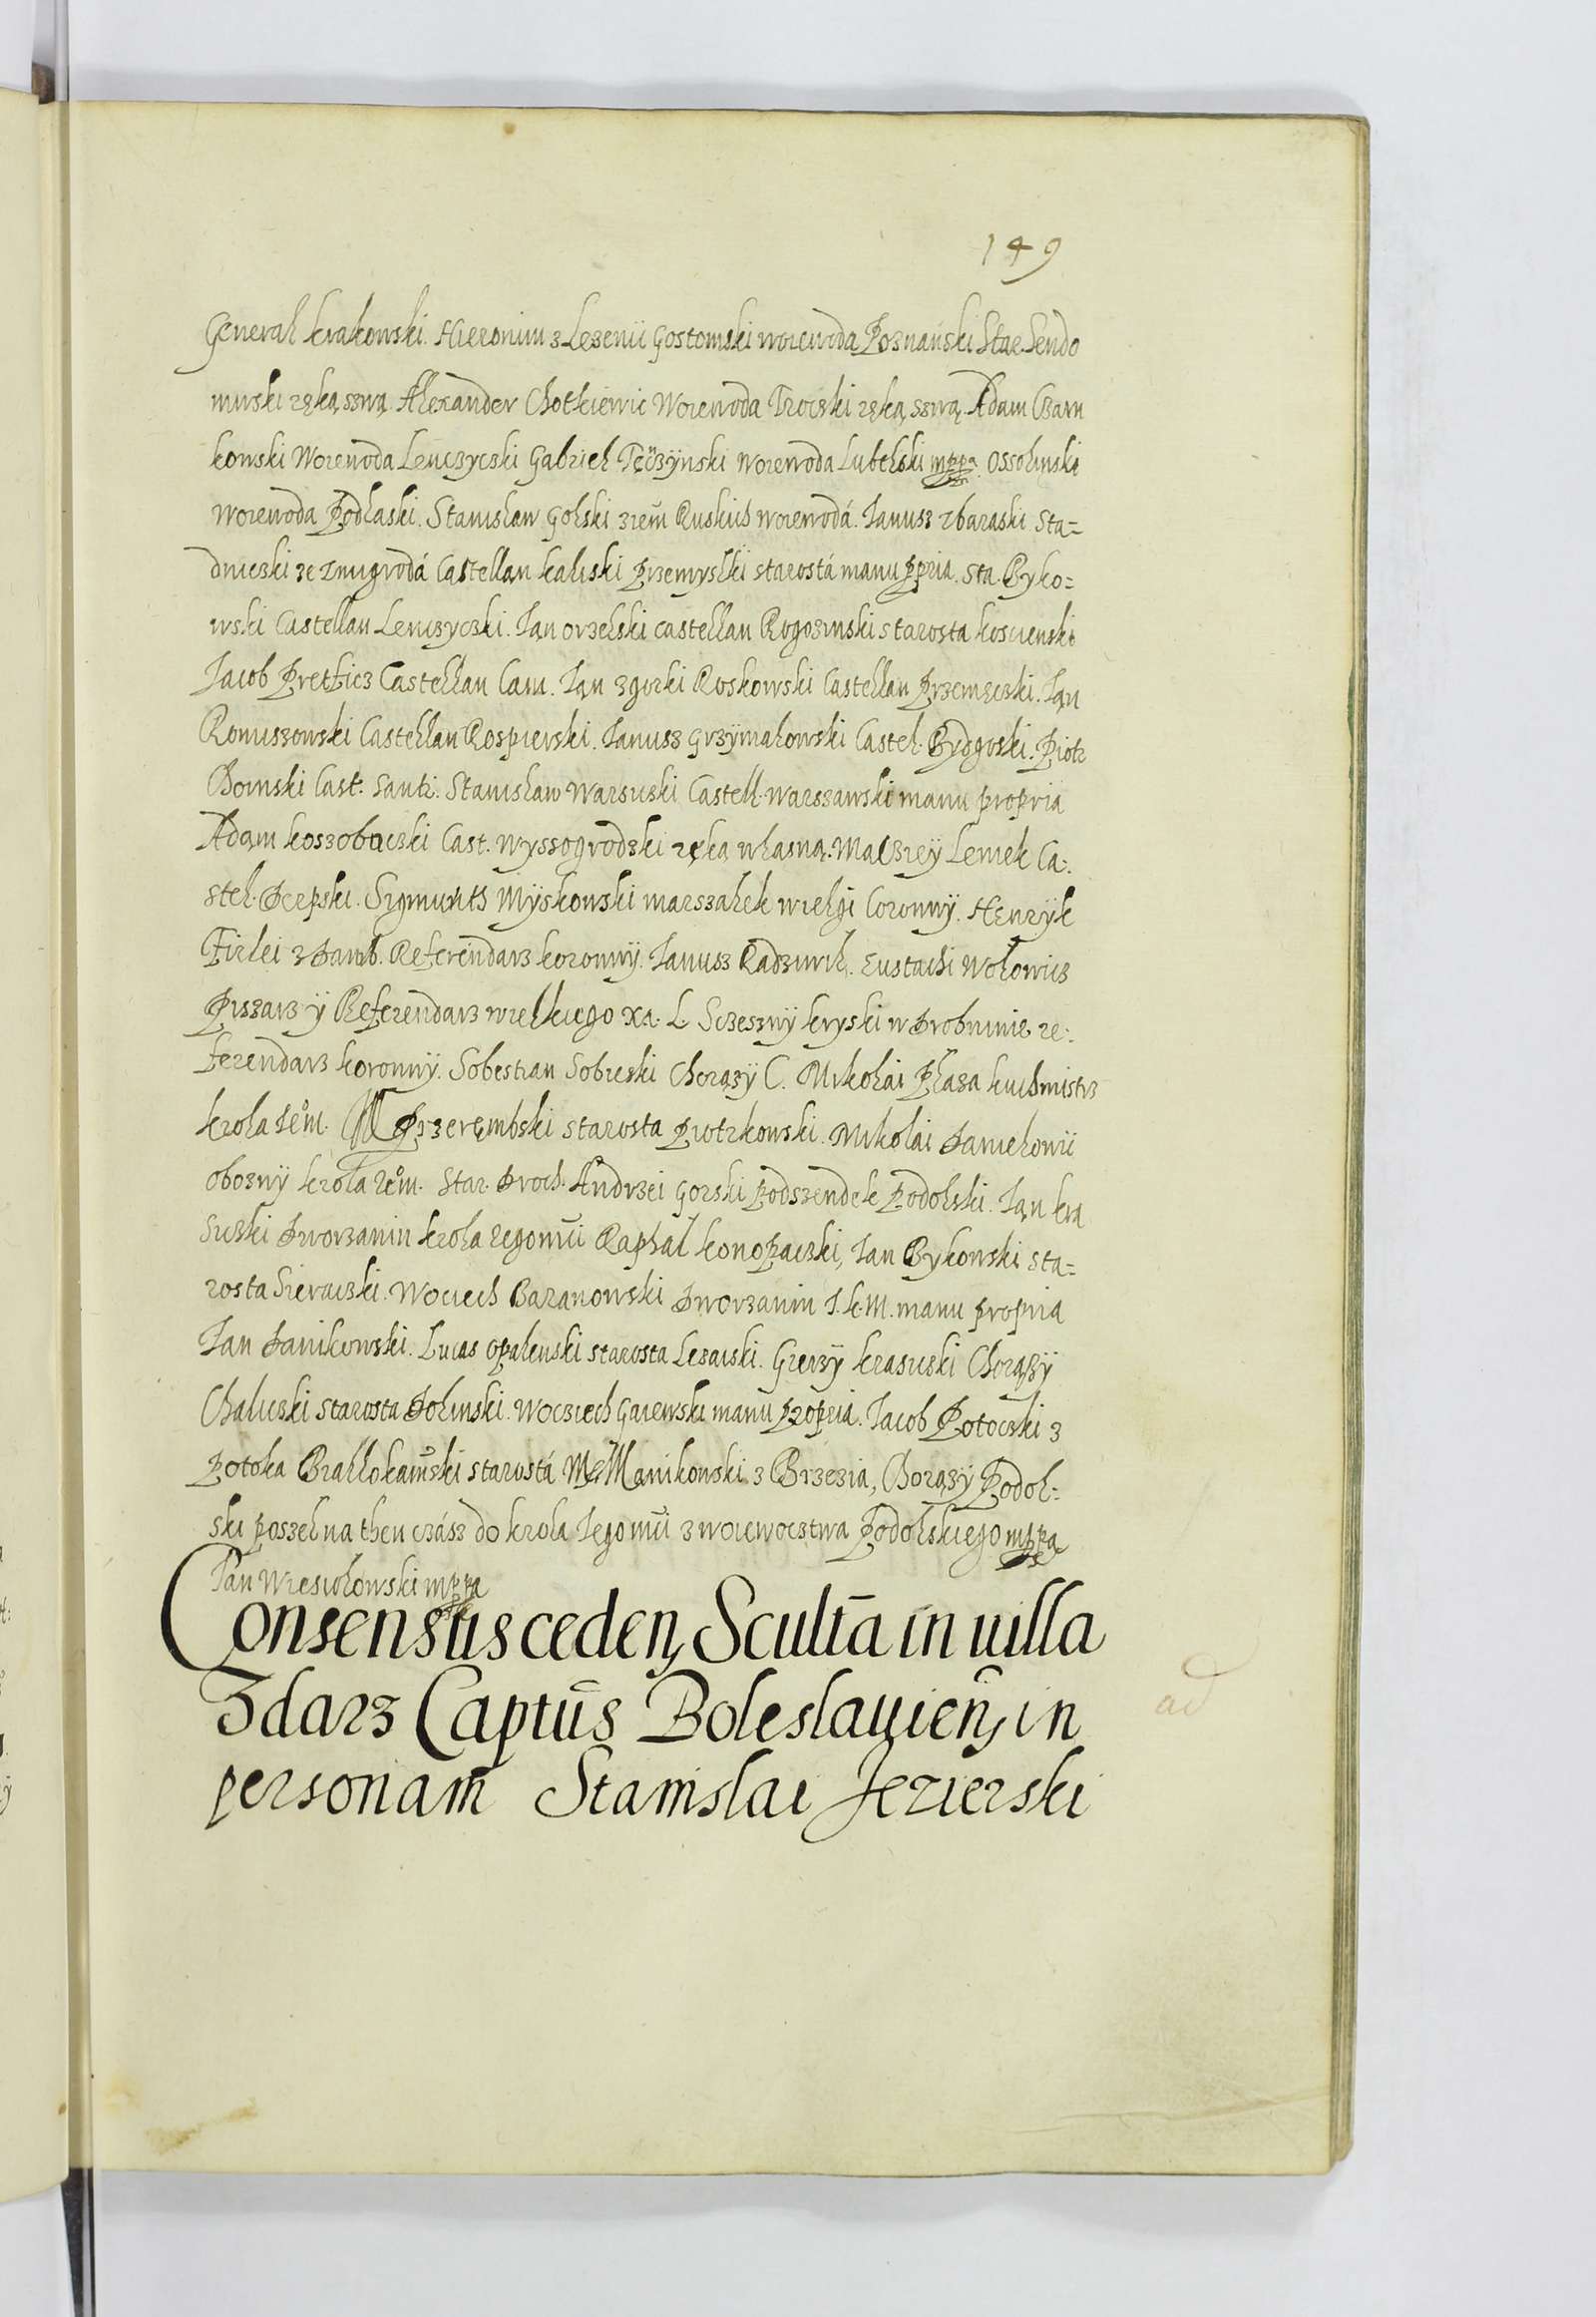 149
Generał krakowski. Hieronim z Lezenii Gostomski woiewoda Poznański Star. Sendo
mirski ręką swą. Alexander Chotkiewic Woiewoda Trocski ręką swą. Adam Czarn
kowski Woiewoda Lenczycski Gabriel Tęczÿnski woiewoda Lubelski mppa Ossolinski
woiewoda Podlaski. Stanisław Golski ziem Ruskich woiewodá. Janusz Zbaraski. Sta=
dnicski ze Zmigrodá Castellan kaliski Przemyslki starostá manu ppria. Sta. Byko=
wski Castellan Lenczyczki. Jan orzelski castellan Rogozinski starosta koscienski
Jacob Pretficz Castellan Cam. Jan z gorki Roskowski Castellan Przemęczki. Jan
Roniuszowski Castellan Rospierski. Janusz Grzÿmałowski Castel. Bydgoski. Piotr
Choinski Cast. Santi. Stanisław Warsicki Castell. Warszawski manu propria
Adam koszobucski Cast. Wyssogrodzki ręka własną. Maczieÿ Leniek Ca:
stel. Scepski. Sigmunth Mÿskowski marszałek wielgi Coronnÿ. Henrÿk
Firlei z Damb. Referendarz koronnÿ. Janusz Radziwił. Eustachi Wołowicz
Piszarz ÿ Referendarz wielkiego xa. L. Sczesznÿ kryski w Drobninie re:
ferendarz koronnÿ. Sobestian Sobieski Chorązÿ C. Mikołai Płaza kuchmistrz
krola Jeᵒm. M Przerembski starosta Piotrkowski. Mikołai Daniełowii
oboznÿ krola Jeᵒm. Star. Droch. Andrzei Gorski Podszendek Podolski. Jan kra
sicski Dworzanin krola Jegomci Raphał konopaczki, Jan Bykowski sta=
rosta Sieraczki. Wociech Baranowski Dworzanin J. k. M. manu propria
Jan Danikowski. Lucas opalenski starosta Lezaiski. Gierzÿ krasicski Chorążÿ
Chalicski starosta Dolinski. Wocziech Gaiewski manu propria. Jacob Potocski z
Potoka Biallokamski starostá M Manikowski z Brzezia, Chorązÿ Podol=
ski poszeł na then czász do krola Jegomci z woiewocztwa Podolskiego mppa
Jan Wiesiołowski mppa
Consensus ceden, Scultia in uilla
Zdarz Captus Boleslauien, in
personam Stanislai Jezierski
ad